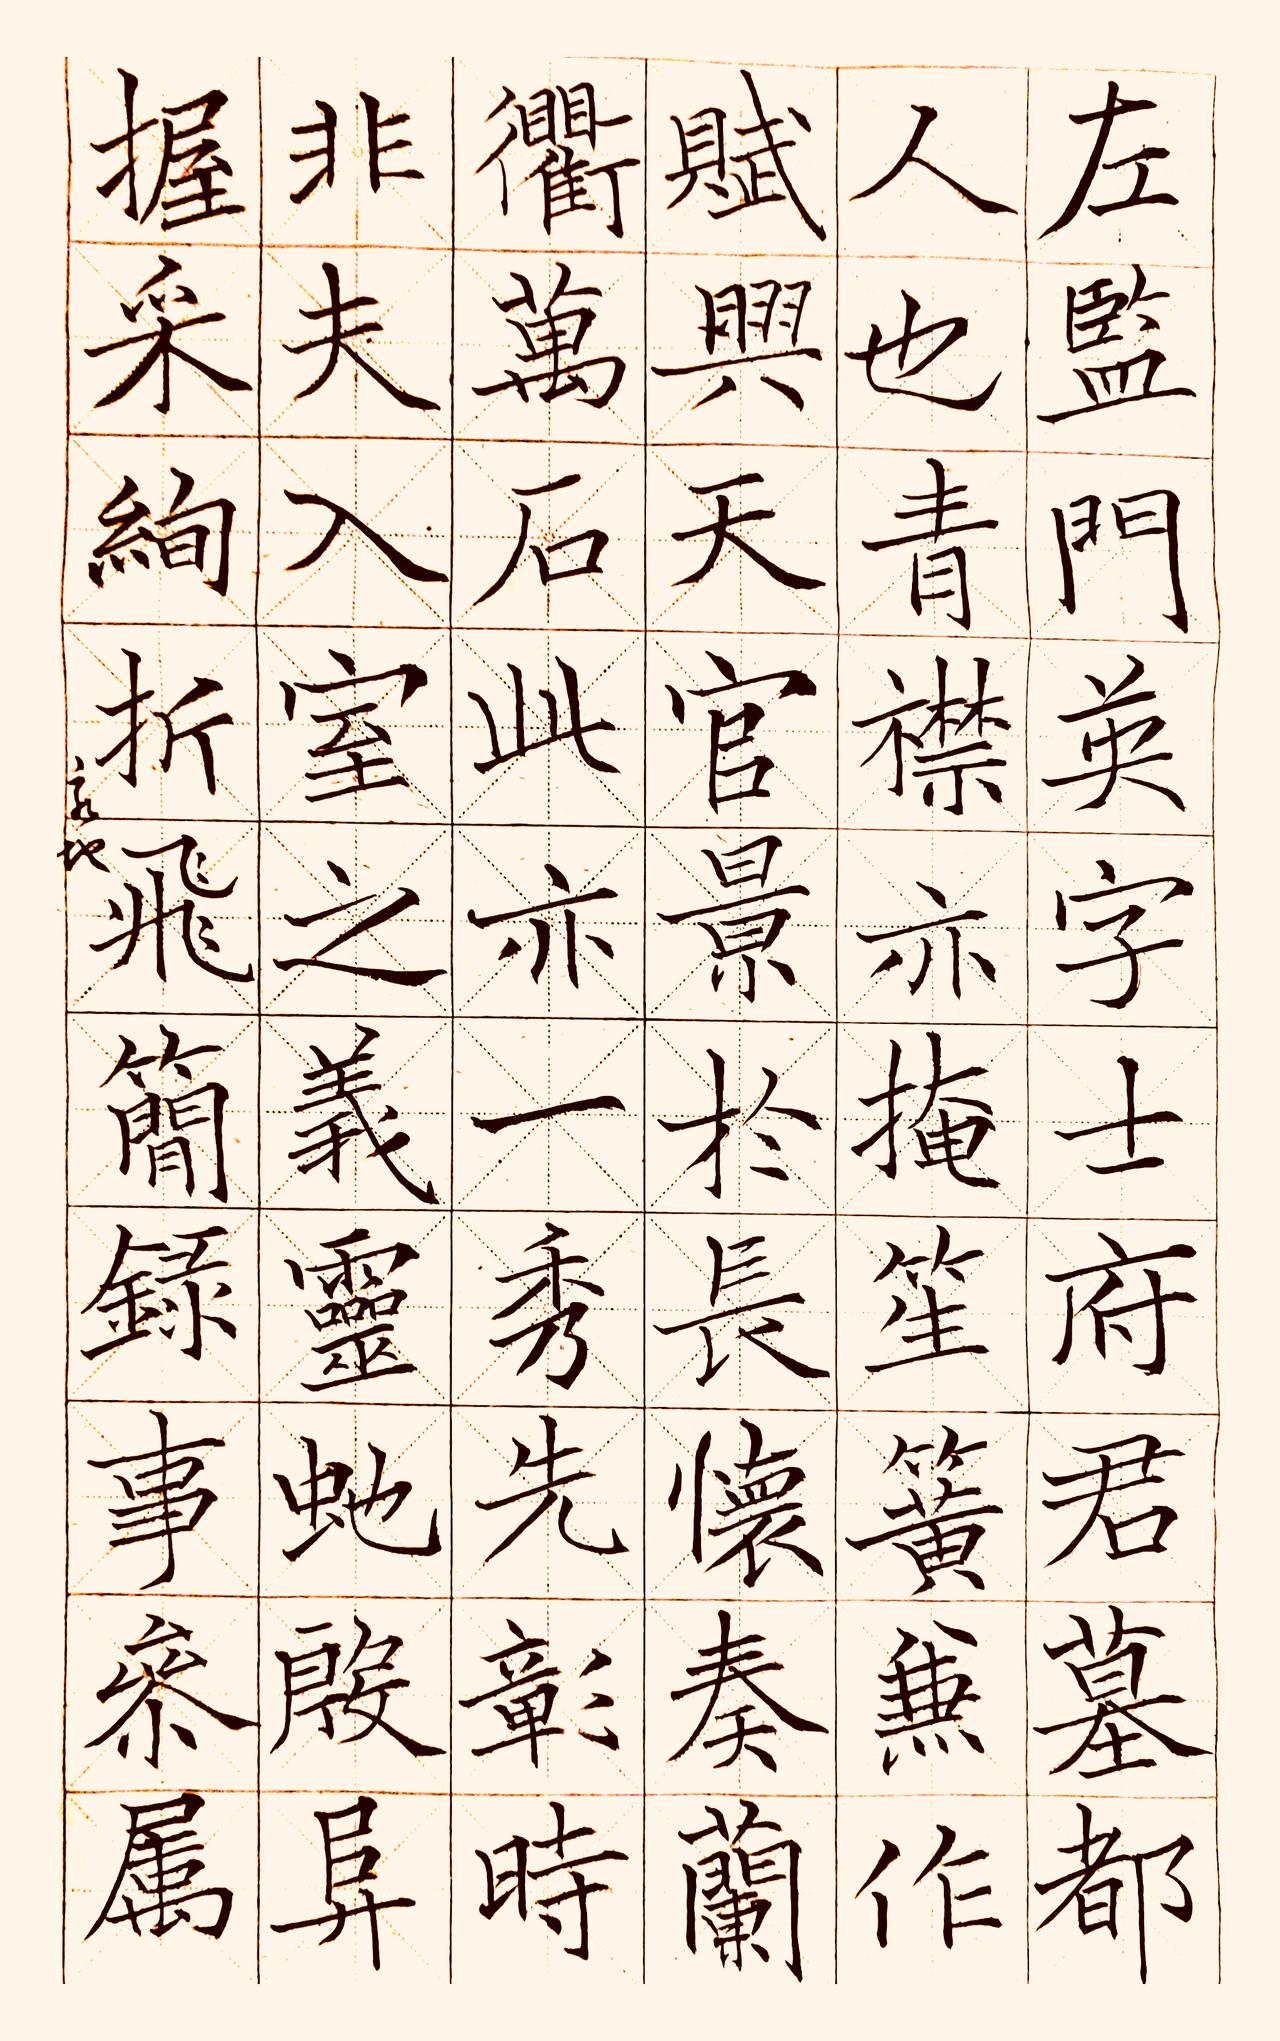 左監門英字士府君墓都
人也青襟亦掩笙簧兼作
賦興天官景於長懷奏蘭
衢萬石此亦一秀先彰時
非夫入室之義靈虵殷阜
握采絢折飛簡錄事參属